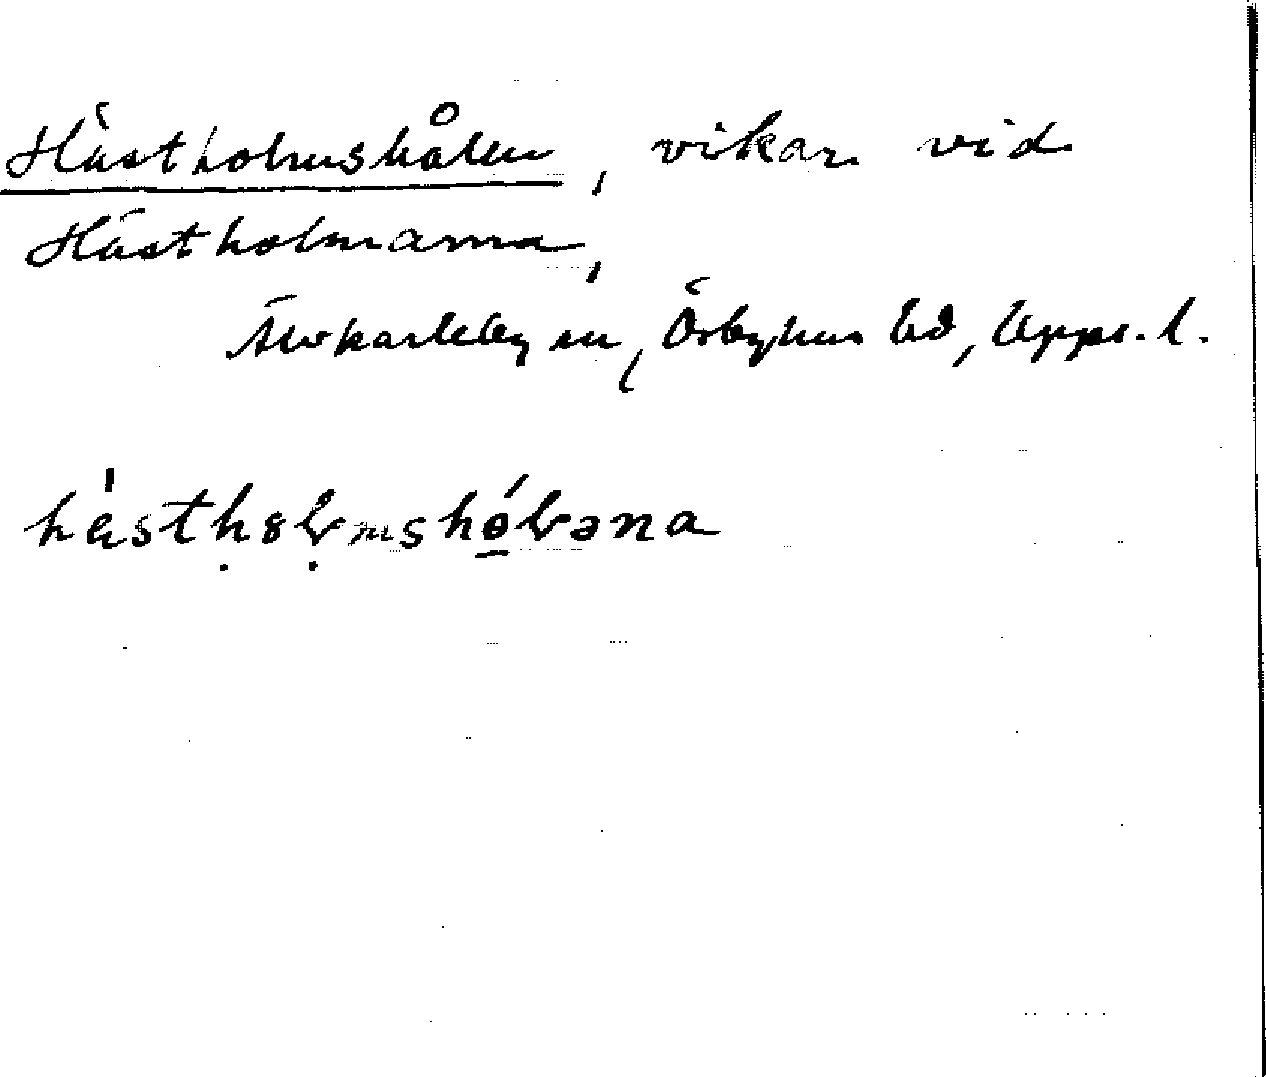 Hästholmshålen, vikar vid
Hästholmarna,
Älvkarleby sn, Örbyhus hd, Upps. l.
hästhølmshólɘna